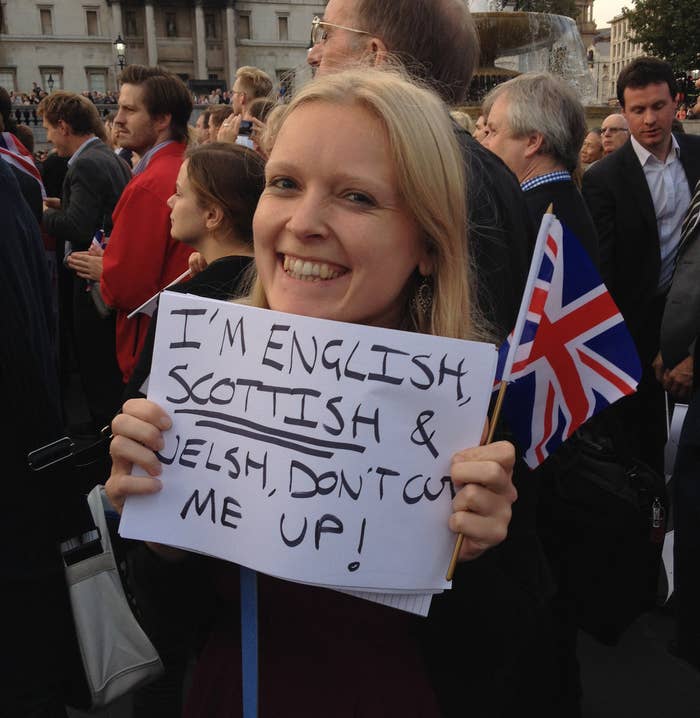 I'M ENGLISH,
SCOTTISH &
WELSH, DON'T CUT
ME UP!